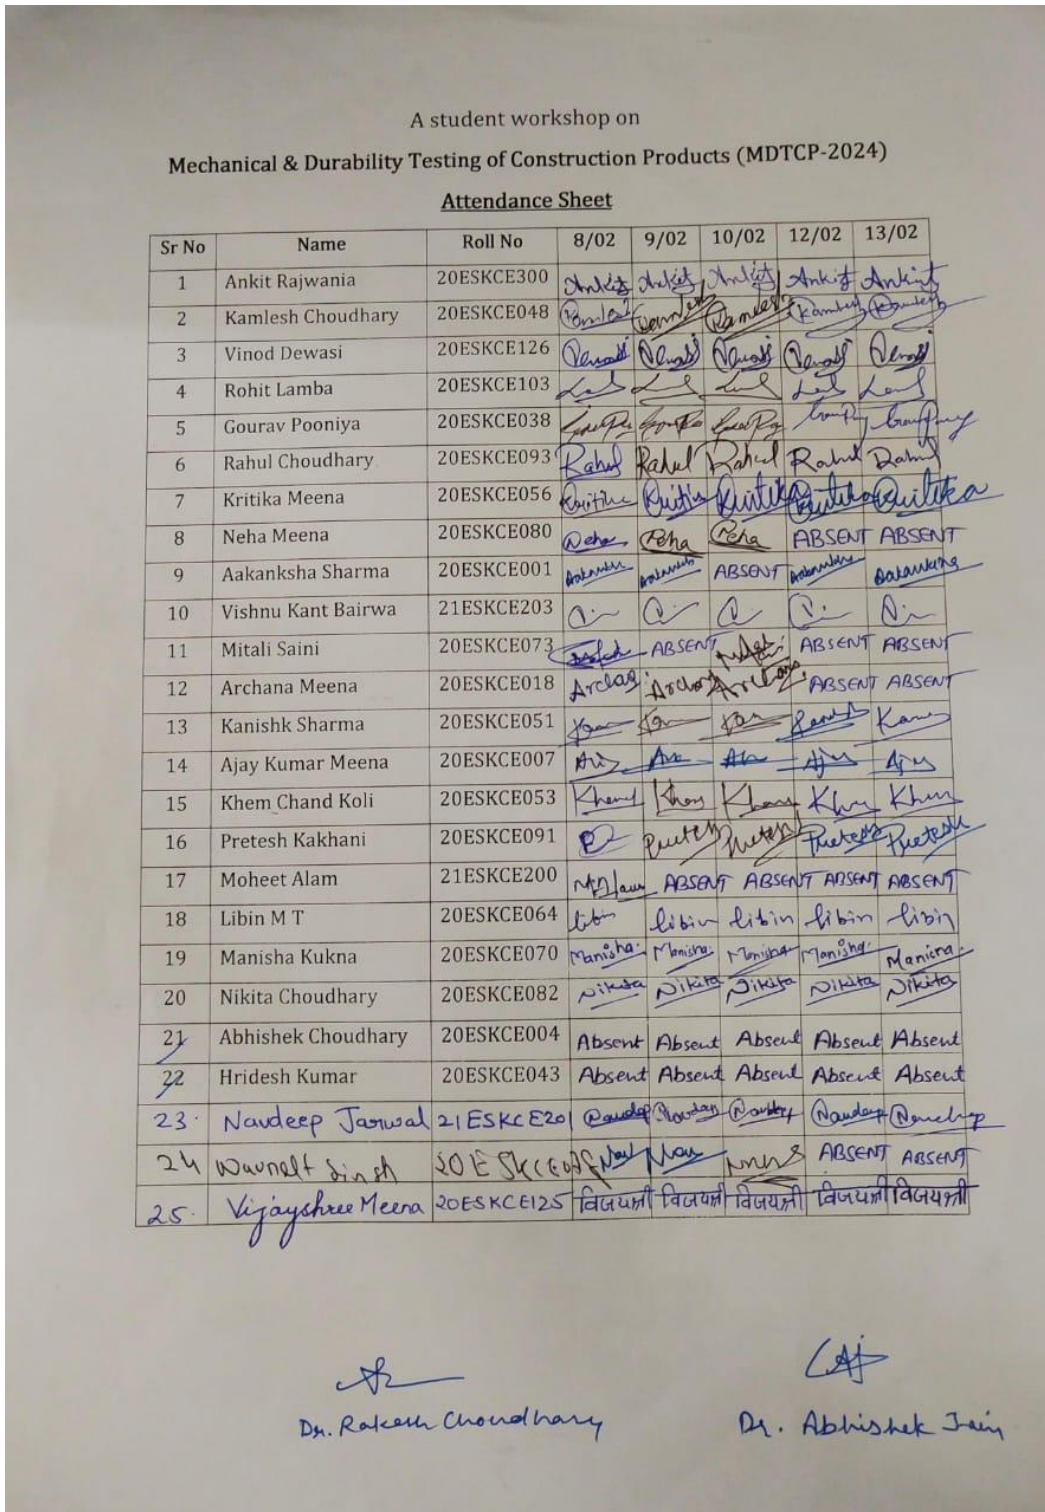 A student workshop on
Mechanical & Durability Testing of Construction Products (MDTCP-2024)
Attendance Sheet
Sr No Name Roll No 8/02 9/02 10/02 12/02 13/02
1 Ankit Rajwania 20ESKCE300 Ankit Ankit Ankit Ankit Ankit
2 Kamlesh Choudhary 20ESKCE048 Kamlesh
3 Vinod Dewasi 20ESKCE126 Dewasi Dewasi Dewasi Dewasi Dewasi
4 Rohit Lamba 20ESKCE103
5 Gourav Pooniya 20ESKCE038
6 Rahul Choudhary 20ESKCE093 Rahul Rahul Rahul Rahul Rahul
7 Kritika Meena 20ESKCE056 Kritika Kritika
8 Neha Meena 20ESKCE080 Neha Neha Neha ABSENT ABSENT
9 Aakanksha Sharma 20ESKCE001 ABSENT
10 Vishnu Kant Bairwa 21ESKCE203
11 Mitali Saini 20ESKCE073 ABSENT ABSENT ABSENT
12 Archana Meena 20ESKCE018 ABSENT ABSENT
13 Kanishk Sharma 20ESKCE051
14 Ajay Kumar Meena 20ESKCE007
15 Khem Chand Koli 20ESKCE053
16 Pretesh Kakhani 20ESKCE091 Pretesh Pretesh Pretesh Pretesh
17 Moheet Alam 21ESKCE200 ABSENT ABSENT ABSENT ABSENT
18 Libin M T 20ESKCE064 libin libin libin libin libin
19 Manisha Kukna 20ESKCE070 Manisha Manisha Manisha Manisha Manisha
20 Nikita Choudhary 20ESKCE082 Nikita Nikita Nikita Nikita Nikita
21 Abhishek Choudhary 20ESKCE004 Absent Absent Absent Absent Absent
22 Hridesh Kumar 20ESKCE043 Absent Absent Absent Absent Absent
23. Navdeep Jarwal 21ESKCE201 Navdeep Navdeep
24 Singh ABSENT ABSENT
25. Vijayshree Meena 20ESKCE125 विजयश्री विजयश्री विजयश्री विजयश्री विजयश्री
Dr. Rakesh Choudhary Dr. Abhishek Jain